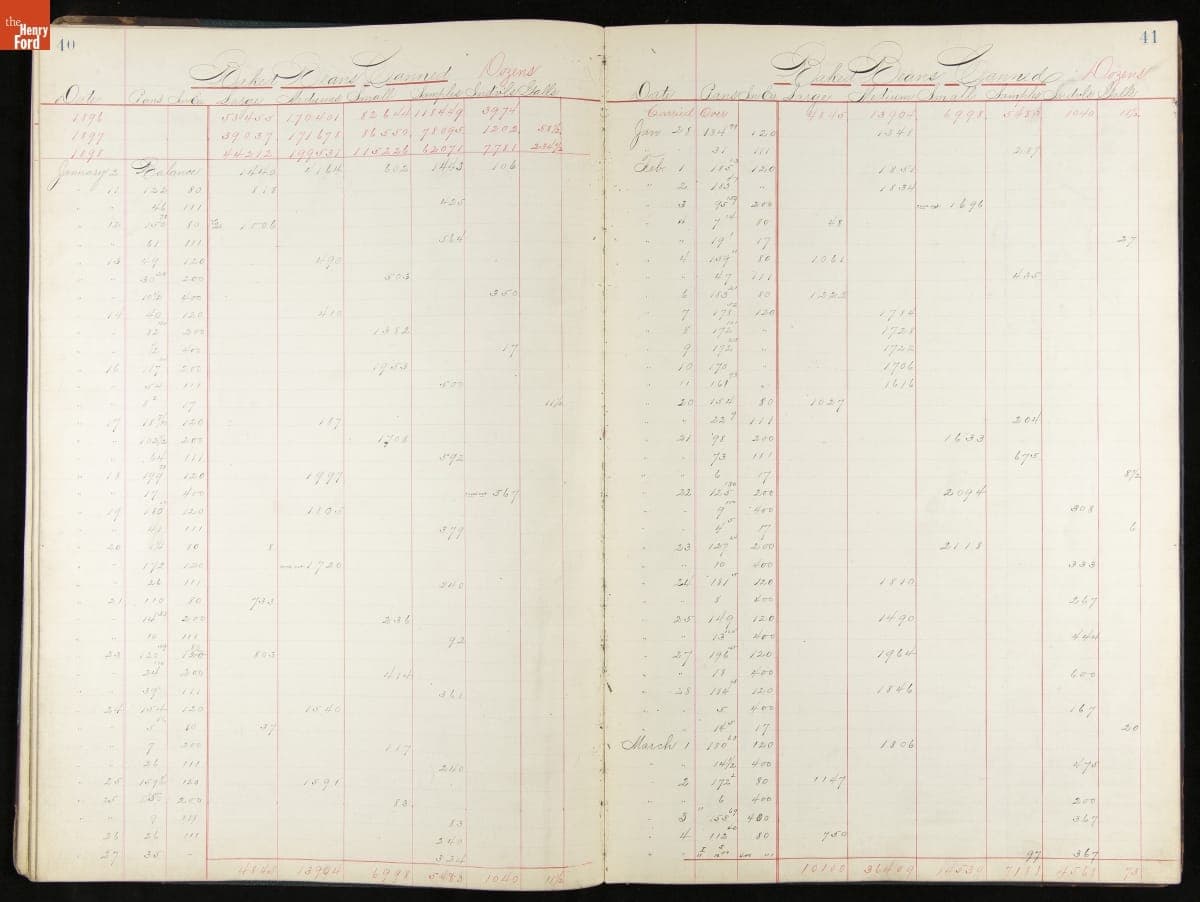 the Henry Ford
40
Baked Beans Canned Dozens
Date Pans In Ea Large Medium Small Samples
1896 53455 170401 82644 118449 3974
1897 39037 171678 86550 78095 1202 58½
1898 44212 199538 115226 62071 7781 234½
January 2 Balance 1440 602 1443 106
" 11 122 80 818
" " 46 111 425
" 12 150 80 1006
" " 61 111 564
" 13 49 120 490
200 503
" " 10½ 400 350
" 14 40 120 400
" " 82 200 1382
" " ½ 400 17
" 16 117 200 1953
" " 54 111 500
17 11½
" 17 120 187
" " 102½ 200 1708
" " 64 111 592
" 18 199 120 1997
" " 17 400 567
" 19 180 120 1805
" " 41 111 379
" 20 80 8
" " 172 120 1720
" " 26 111 240
" 21 110 80 733
" " 14 200 236
" " 10 111 92
" 23 120 803
" " 24 200 414
" " 39 111 361
" 24 154 120 1540
" " 5 80 37
" " 7 200 117
" " 26 111 240
" 25 159 120 1591
" 25 200 83
" " 9 111 83
" 26 26 111 240
" 27 35 " 324
4845 13904 6998 5483 1040 11½
41
Baked Beans Canned Dozens
Date Pans In Ea Large Medium Small Samples
Carried Over 4845 13904 6998 5483 1040 11½
Jan. 28 134 120 1348
" " 31 111 287
Feb 1 185 120 1850
" 2 183 " 1834
" 3 95 200 1696
" 4 7 80 48
" " 19 17 27
" 4 159 80 1061
" " 47 111 435
" 6 183 80 1222
" 7 178 120 1784
" 8 172 " 1728
" 9 172 " 1722
" 10 170 " 1706
" 11 161 " 1616
" 20 154 80 1027
" " 22 111 204
" 21 98 200 1633
" " 73 111 675
" " 6 17 8½
" 22 125 200 2094
" " 9 400 308
" " 4 17 6
" 23 127 200 2118
" " 10 400 333
" 24 181 120 1810
" " 8 400 267
" 25 149 120 1490
" " 13 400 444
" 27 196 120 1964
" " 18 400 600
" 28 184 120 1846
" " 5 400 167
" " 14 17 20
March 1 180 120 1806
" " 14½ 400 475
" 2 172 80 1147
" " 6 400 200
" 3 400 367
" 4 112 80 750
97 367
10100 36409 14539 4568 73